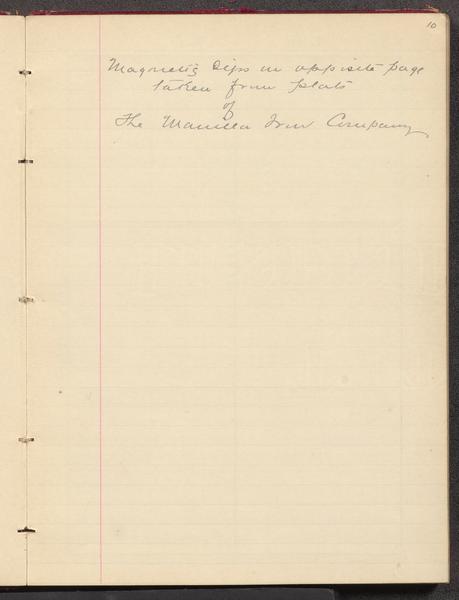 10
Magnetic Dips on opposite page
taken from plats
of
The Manilla Iron Company